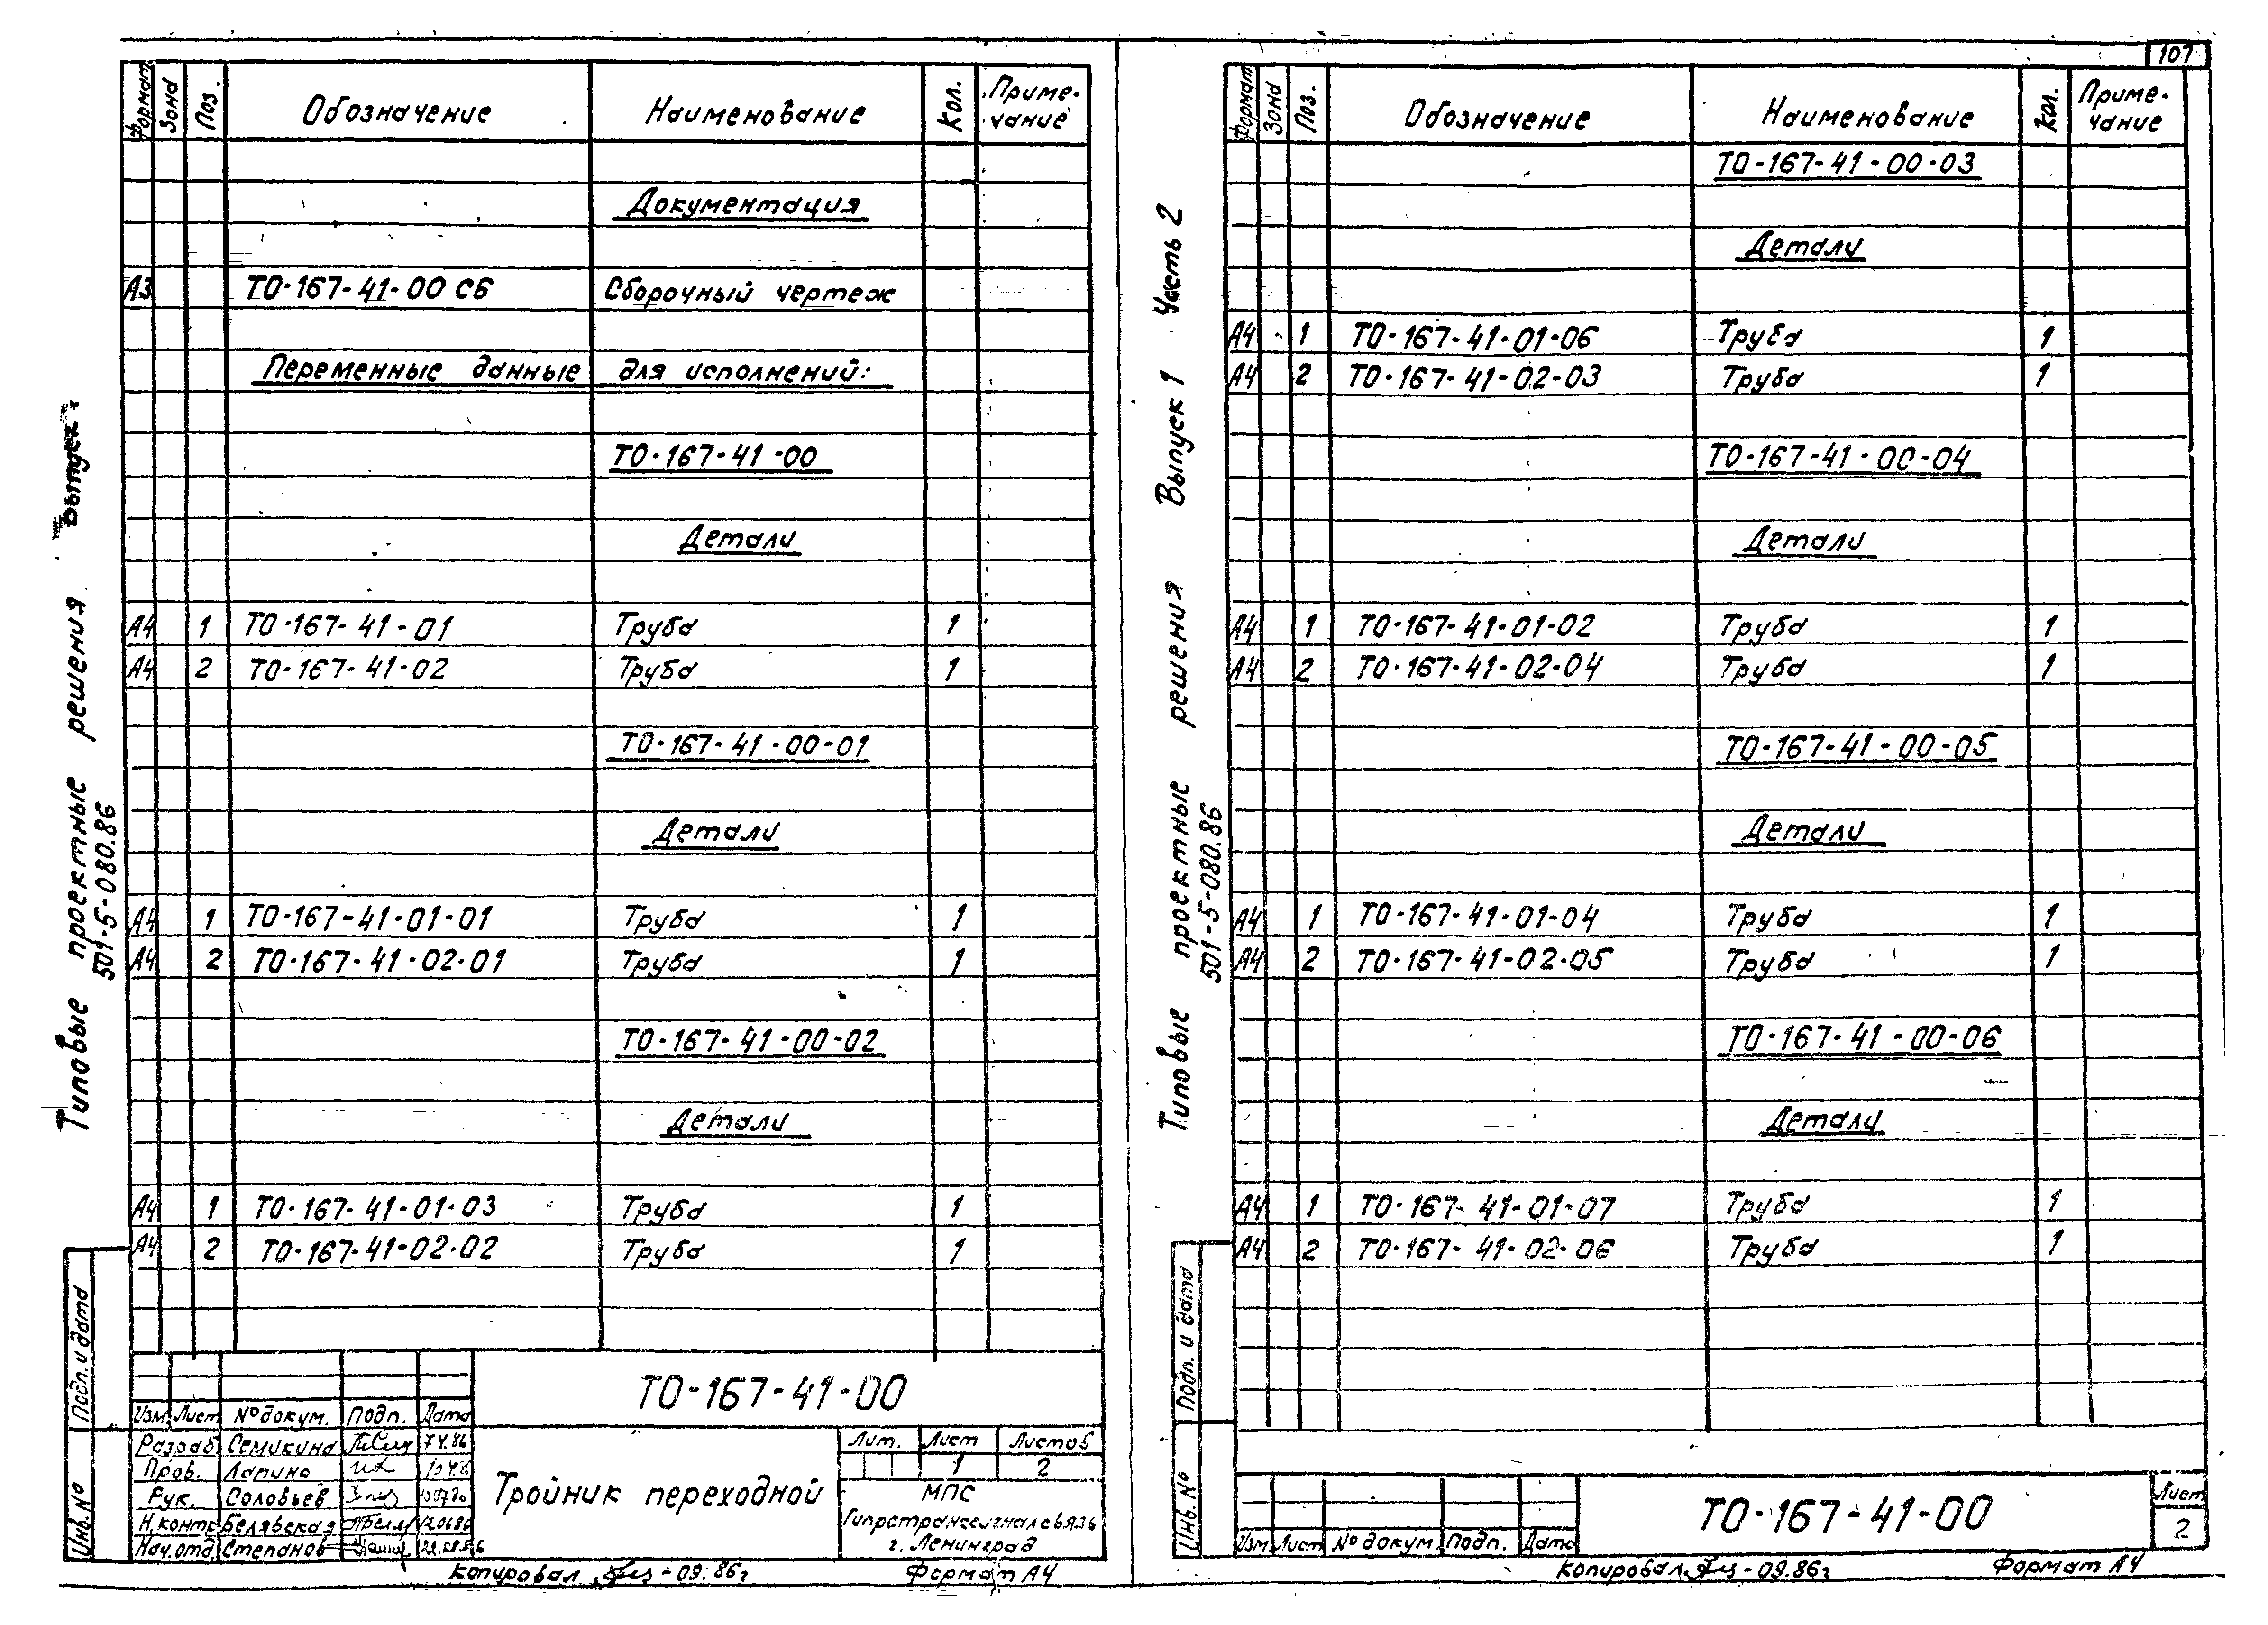 107
Формат Зона Поз. Обозначение Наименование Кол. Приме-
чание
Документация
А3 ТО-167-41-00 СБ Сборочный чертеж
Переменные данные для исполнений:
ТО-167-41-00
Детали
А4 1 ТО-167-41-01 Труба 1
А4 2 ТО-167-41-02 Труба 1
ТО-167-41-00-01
Детали
А4 1 ТО-167-41-01-01 Труба 1
А4 2 ТО-167-41-02-01 Труба 1
ТО-167-41-00-02
Детали
А4 1 ТО-167-41-01-03 Труба 1
А4 2 ТО-167-41-02-02 Труба 1
Типовые проектные решения Выпуск
501-5-080.86
Подп. и дата
Инв. №
ТО-167-41-00
Изм Лист № докум. Подп. Дата
Разраб Семикина
Пров. Лапина
Рук. Соловьев
Н.контр Белявская
Нач.отд Степанов
Тройник переходной
Лит. Лист Листов
1 2
МПС
Гипротранссигналсвязь
г. Ленинград
Копировал 09.86г Формат А4
Формат Зона Поз. Обозначение Наименование Кол. Приме-
чание
ТО-167-41-00-03
Детали
А4 1 ТО-167-41-01-06 Труба 1
А4 2 ТО-167-41-02-03 Труба 1
ТО-167-41-00-04
Детали
А4 1 ТО-167-41-01-02 Труба 1
А4 2 ТО-167-41-02-04 Труба 1
ТО-167-41-00-05
Детали
А4 1 ТО-167-41-01-04 Труба 1
А4 2 ТО-167-41-02-05 Труба 1
ТО-167-41-00-06
Детали
А4 1 ТО-167-41-01-07 Труба 1
А4 2 ТО-167-41-02-06 Труба 1
Типовые проектные решения Выпуск 1 Часть 2
501-5-080.86
Подп. и дата
Инв. №
Изм Лист № докум. Подп. Дата
ТО-167-41-00
Лист
2
Копировал 09.86г Формат А4